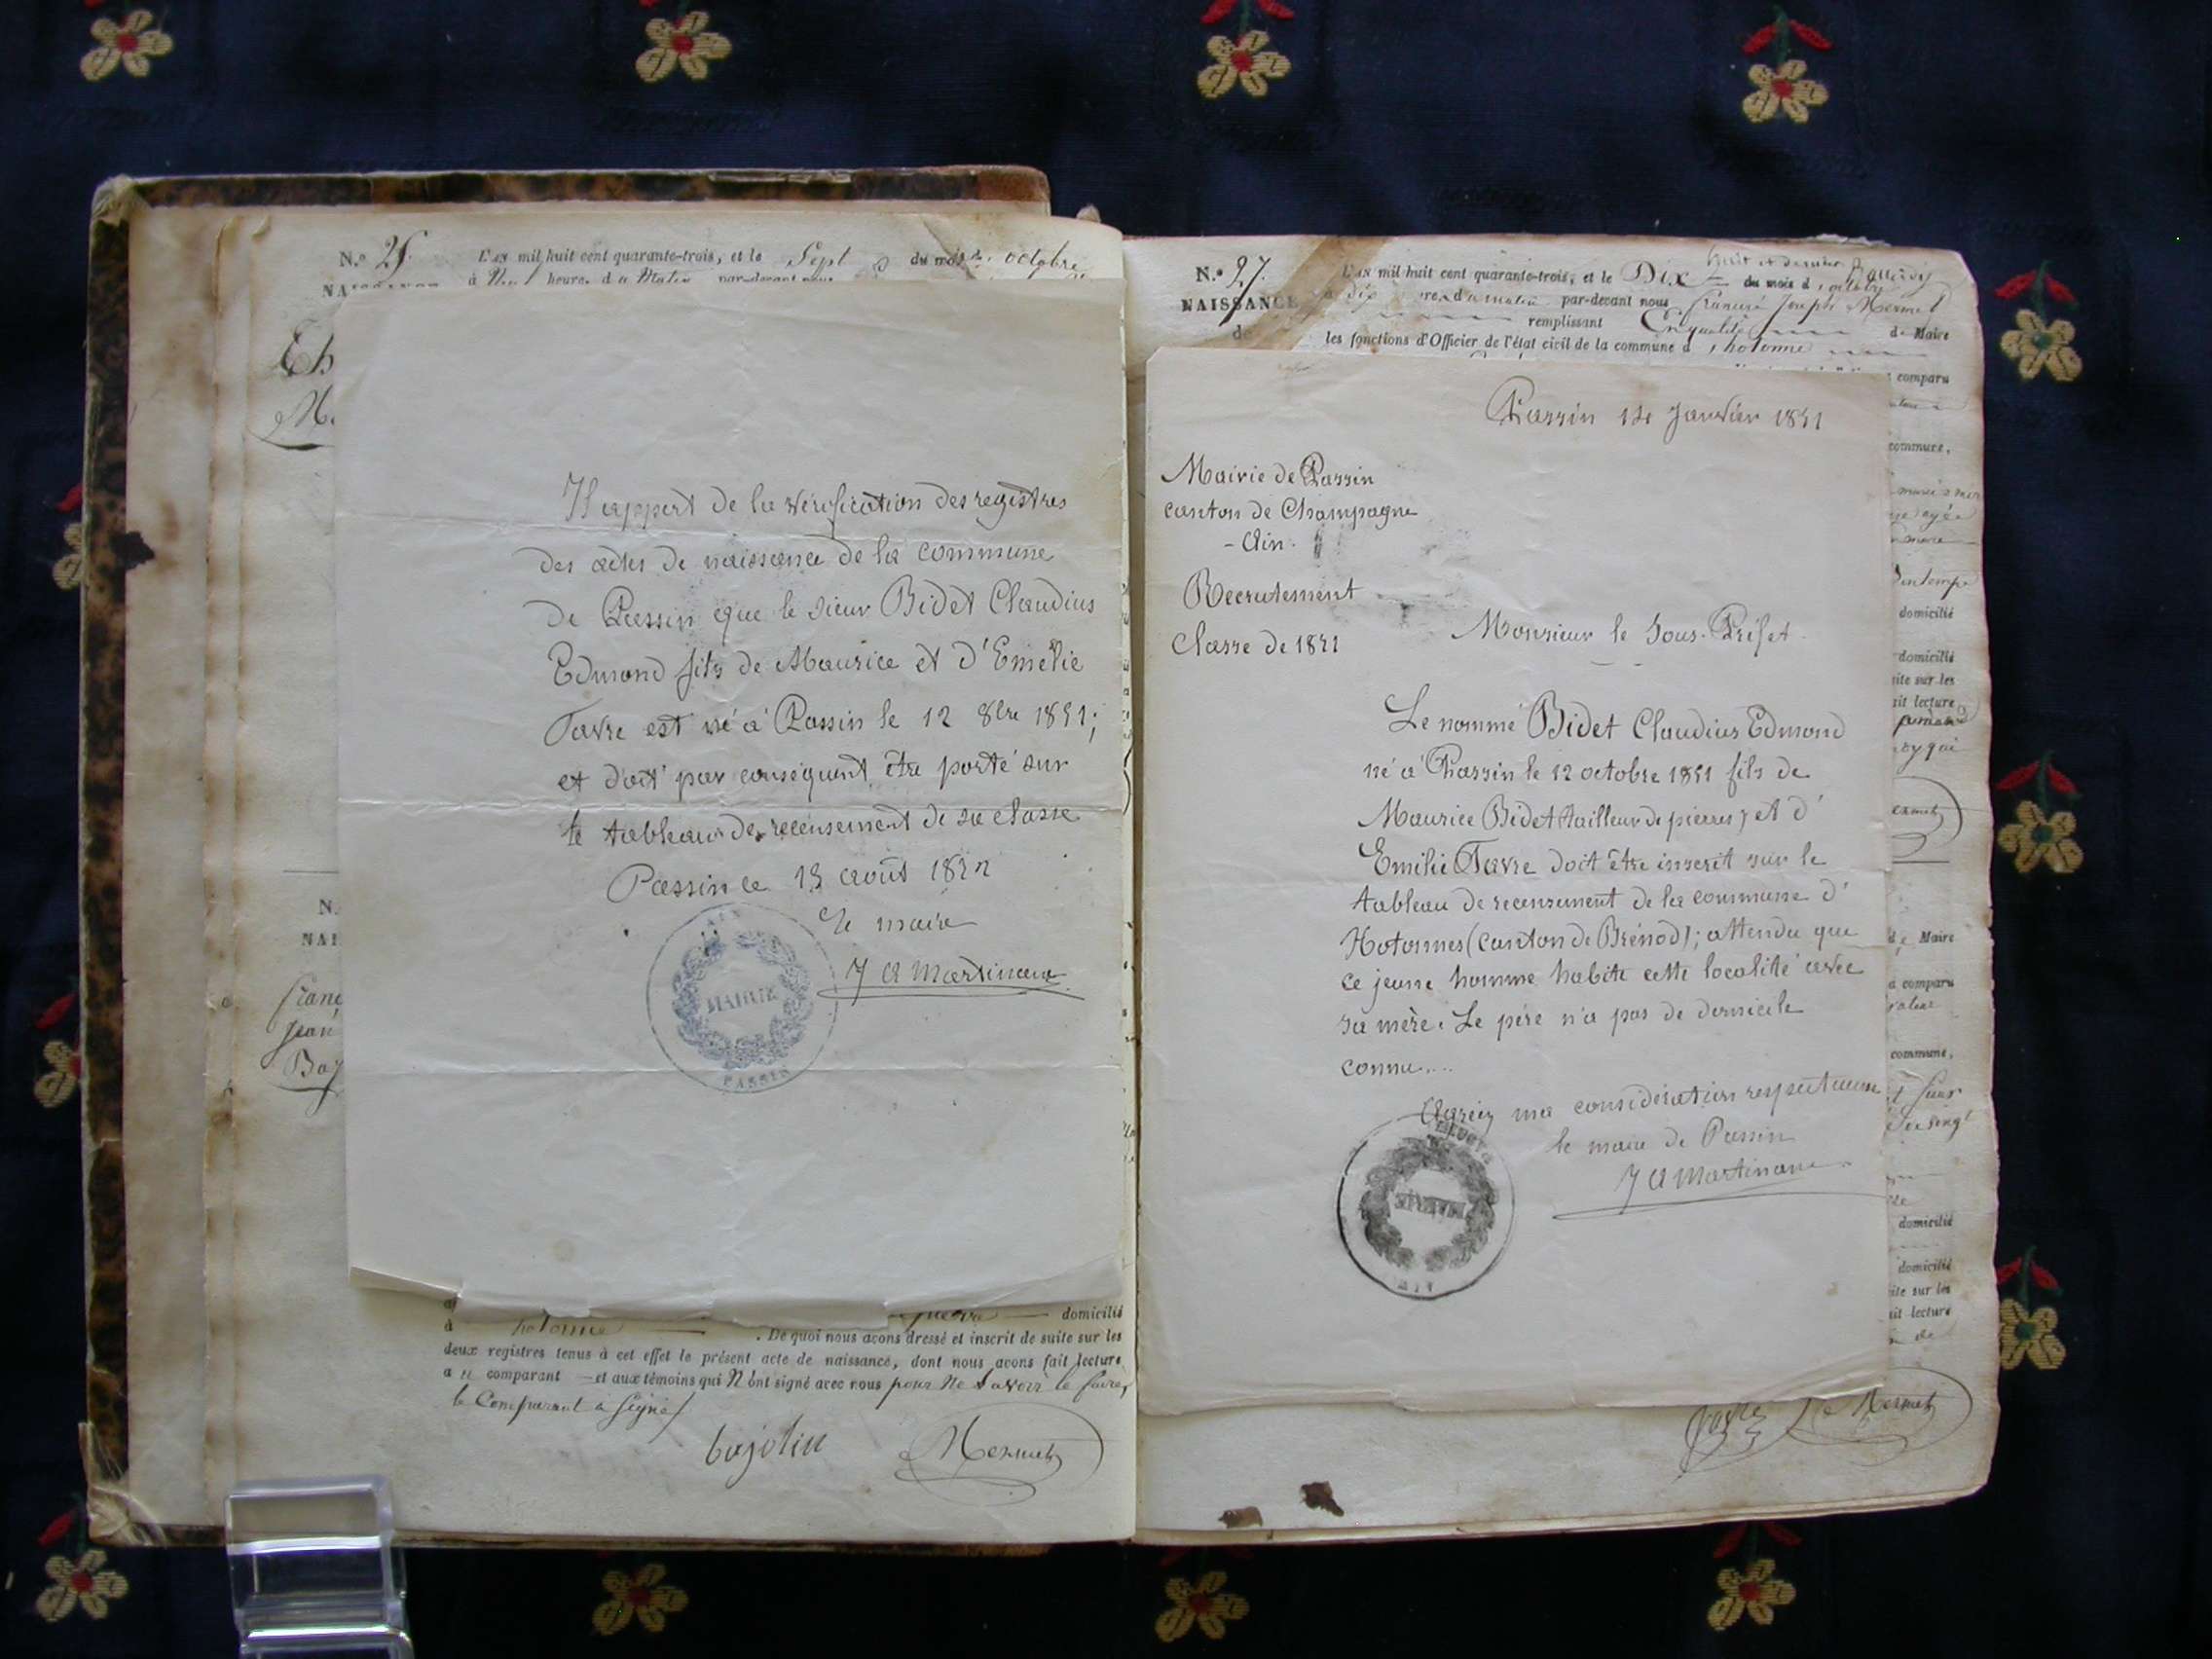 N.º 25. L'AN mil huit cent quarante-trois, et le Sept du mois d' octobre
à heure du Matin par-devant nous
Il appert de la vérification des registres
des actes de naissance de la commune
de Passin que le sieur Bidet Claudius
Edmond fils de Maurice et d'Emelie
Favre est né à Passin le 12 8bre 1851;
et doit par conséquent être porté sur
le tableau de recensement de sa classe
Passin le 13 août 1872
le maire
J A Martinand
AIN
MAIRIE
PASSIN
N.
NAI
franç
Jean
à hotonne domicilié
. De quoi nous avons dressé et inscrit de suite sur les
deux registres tenus à cet effet le présent acte de naissance, dont nous avons fait lecture
au comparant — et aux témoins qui N'ont signé avec nous pour Ne Savoir le faire,
le Comparant a Signé
bajolin Mermet
N.º 27. L'AN mil huit cent quarante-trois, et le Dix du mois d'octobre
NAISSANCE à dix heures du matin par-devant nous françois Joseph Mermet
remplissant En qualité de Maire
de les fonctions d'Officier de l'état civil de la commune d'hotonne
Passin 14 Janvier 1871
Mairie de Passin
canton de Champagne
- Ain -
Recrutement
Classe de 1871
Monsieur le Sous-Préfet
Le nommé Bidet Claudius Edmond
né à Passin le 12 octobre 1851 fils de
Maurice Bidet (tailleur de pierres) et d'
Emilie Favre doit être inscrit sur le
tableau de recensement de la commune d'
Hotonnes (canton de Brénod); attendu que
ce jeune homme habite cette localité avec
sa mère. Le père n'a pas de domicile
connu...
Agréez ma considération respectueuse
le maire de Passin
J A Martinand
AIN
comparu
commune,
domicilié
domicilié
suite sur les
fait lecture
Mermet
de Maire
a comparu
commune,
domicilié
domicilié
suite sur les
fait lecture
Mermet